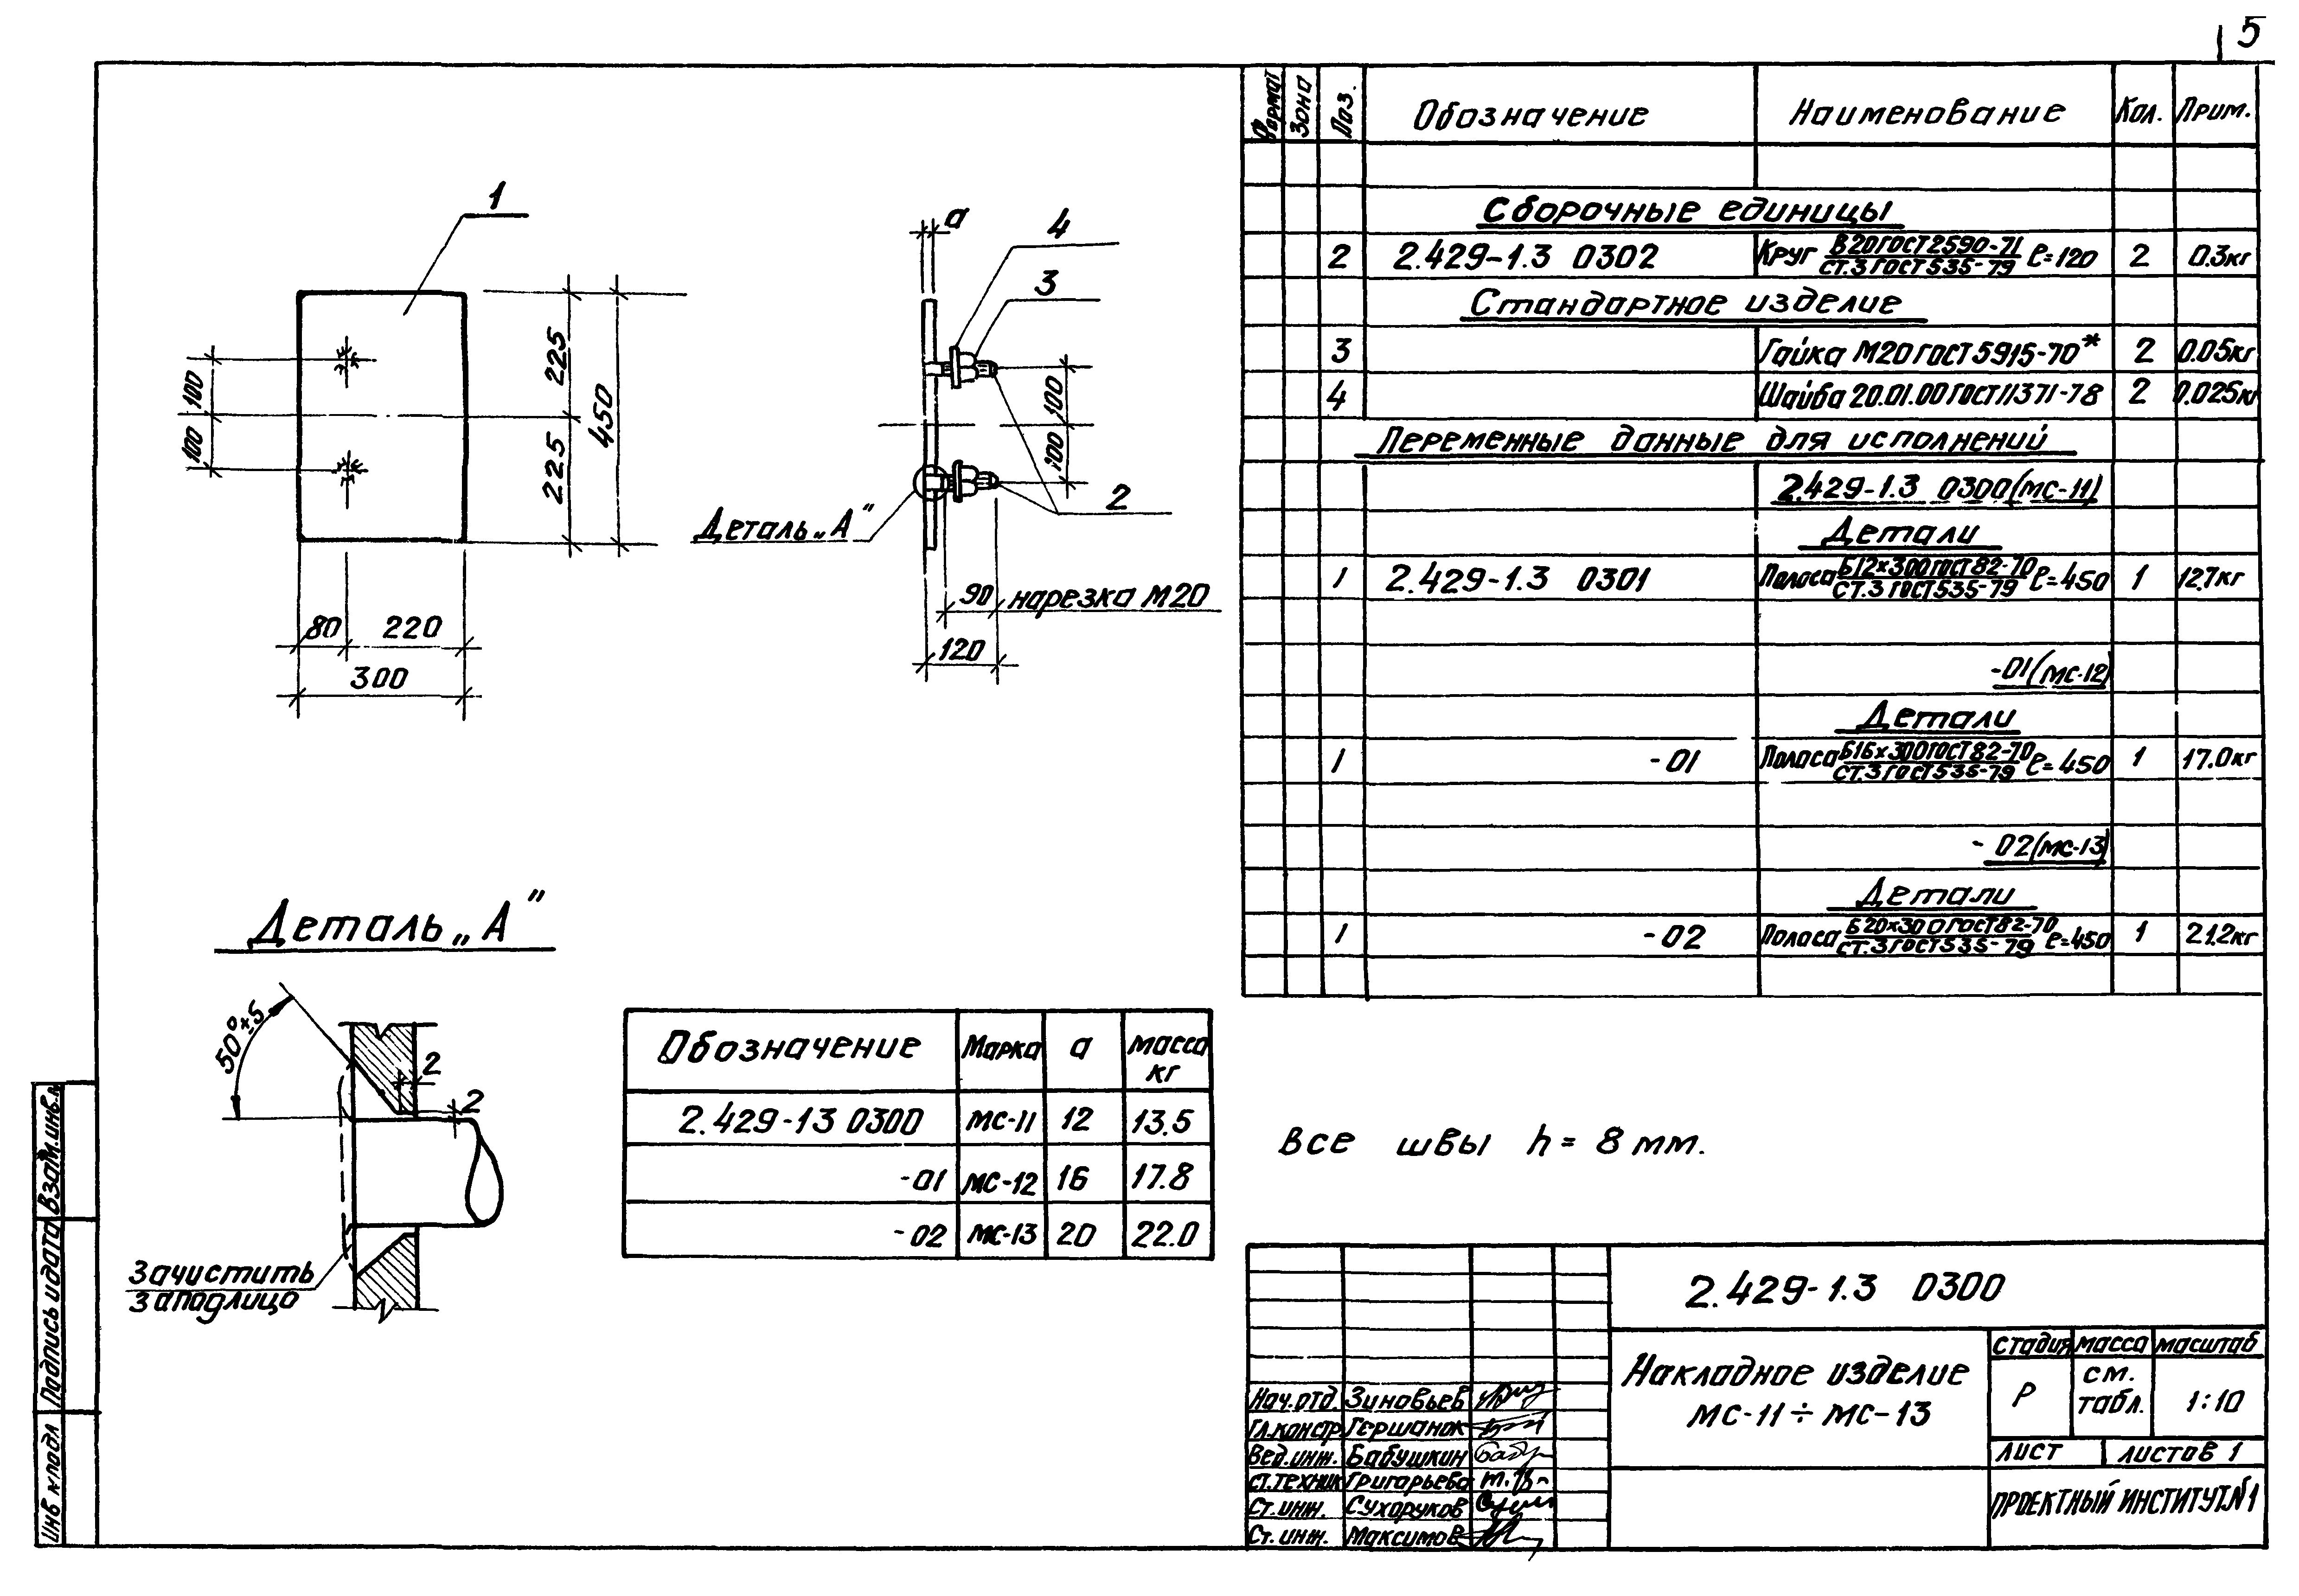 5
1
100
100
225
225
450
80
220
300
a
4
3
100
100
2
Деталь „А"
90
нарезка М20
120
Деталь „А"
50°±5
2
2
Зачистить
заподлицо
Обозначение Марка a масса кг
2.429-13 0300 МС-11 12 13.5
-01 МС-12 16 17.8
-02 МС-13 20 22.0
Формат Зона Поз. Обозначение Наименование Кол. Прим.
Сборочные единицы
2 2.429-1.3 0302 Круг В20ГОСТ2590-71 / СТ.3 ГОСТ535-79 ℓ=120 2 0.3кг
Стандартное изделие
3 Гайка М20 ГОСТ5915-70* 2 0.05кг
4 Шайба 20.01.00 ГОСТ11371-78 2 0.025кг
Переменные данные для исполнений
2.429-1.3 0300(МС-11)
Детали
1 2.429-1.3 0301 Полоса Б12х300 ГОСТ82-70 / СТ.3 ГОСТ535-79 ℓ=450 1 12.7кг
-01(МС-12)
Детали
1 -01 Полоса Б16х300 ГОСТ82-70 / СТ.3 ГОСТ535-79 ℓ=450 1 17.0кг
-02(МС-13)
Детали
1 -02 Полоса Б20х300 ГОСТ82-70 / СТ.3 ГОСТ535-79 ℓ=450 1 21.2кг
Все швы h = 8 мм.
2.429-1.3 0300
Накладное изделие
МС-11 ÷ МС-13
стадия масса масштаб
Р см. табл. 1:10
лист листов 1
ПРОЕКТНЫЙ ИНСТИТУТ№1
Нач.отд. Зиновьев
Гл.констр Гершанок
Вед.инж. Бабушкин
ст.техник Григорьева
Ст.инж. Сухоруков
Ст.инж. Максимов
Взам.инв.№
Подпись и дата
Инв № подл